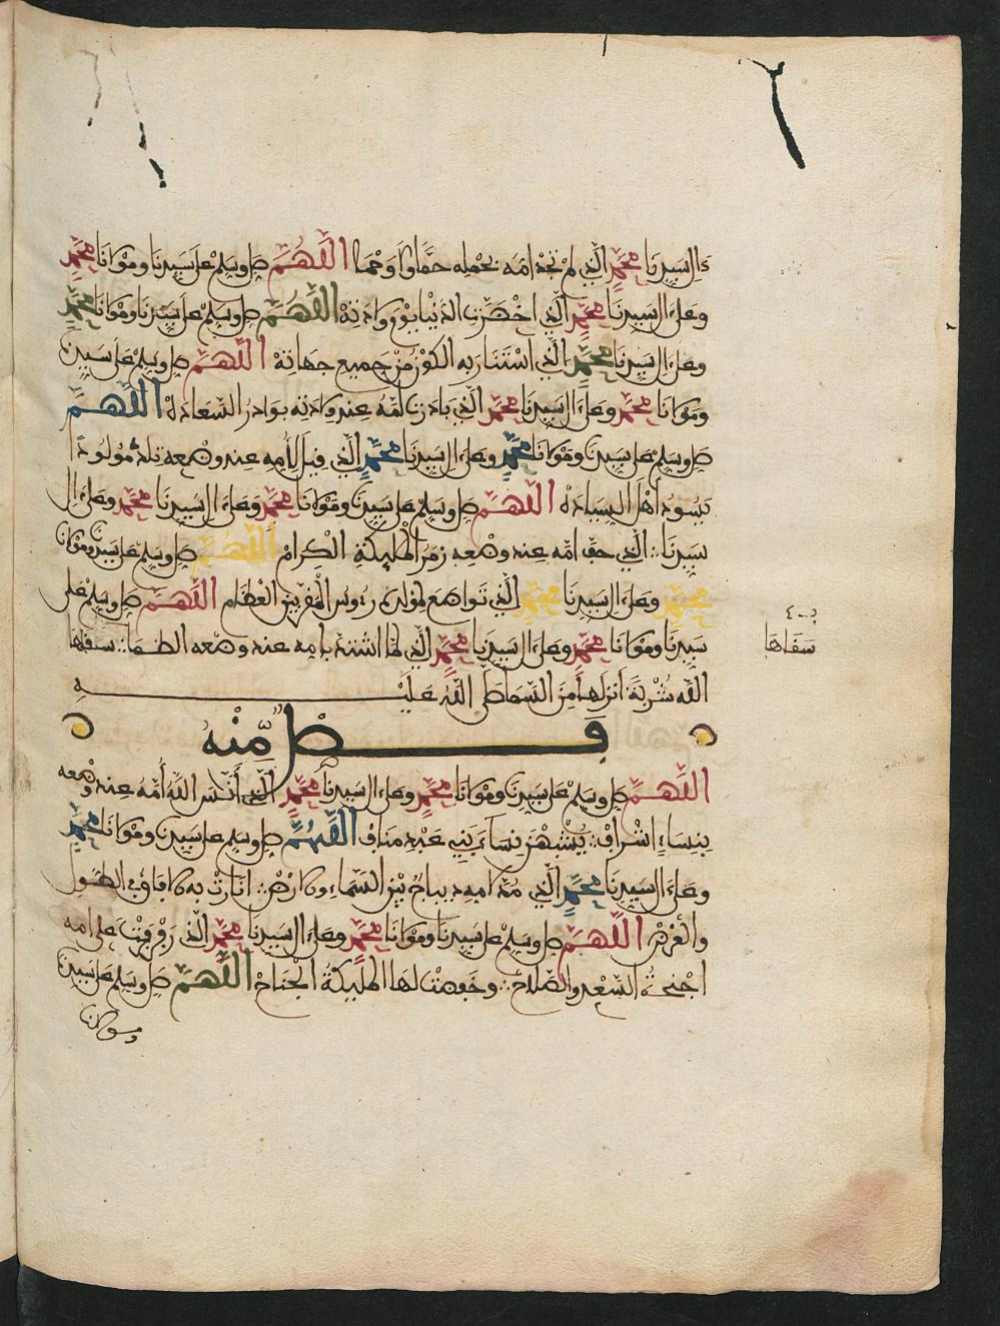 ءال سيدنا محمد الذي لم تجد امه بحمله حملا ولا وحما اللهم صل وسلم على سيدنا ومولانا محمد
وعلى ءال سيدنا محمد الذي اخضرت الدنيا يوم ولادته اللهم صل وسلم على سيدنا ومولانا محمد
وعلى ءال سيدنا محمد الذي استنار به الكون من جميع جهاته اللهم صل وسلم على سيدنا
ومولانا محمد وعلى ءال سيدنا محمد الذي بادرت امه عند ولادته بوادر السعادة اللهم
صل وسلم على سيدنا ومولانا محمد وعلى ءال سيدنا محمد الذي قيل لامه عند وضعه تلد مولودا
يسود اهل السيادة اللهم صل وسلم على سيدنا ومولانا محمد وعلى ءال سيدنا محمد وعلى ءال
سيدنا الذي حف امه عند وضعه زمر الملىكة الكرام اللهم صل وسلم على سيدنا ومولانا
محمد وعلى ءال سيدنا محمد الذي تواضع لمولده رءوس المقربين العظام اللهم صل وسلم على
سيدنا ومولانا محمد وعلى ءال سيدنا محمد الذي لما اشتد بامه عند وضعه الظما سقاها
الله شربة انزلها من السما صلى الله عليه
سقاها
فصل منه
اللهم صل وسلم على سيدنا ومولانا محمد وعلى ءال سيدنا محمد الذي أنس الله أمه عند وضعه
بنساء اشراف يشبهن نساء بني عبد مناف اللهم صل وسلم على سيدنا ومولانا محمد
وعلى ءال سيدنا محمد الذي مد لامه ديباج بين السماء والارض انارت به الافاق في الطول
والعرض اللهم صل وسلم على سيدنا ومولانا محمد وعلى ءال سيدنا محمد الذي رفرفت على امه
اجنحة السعد والصلاح وخفضت لها الملىكة الجناح اللهم صل وسلم على سيدنا
ومولانا